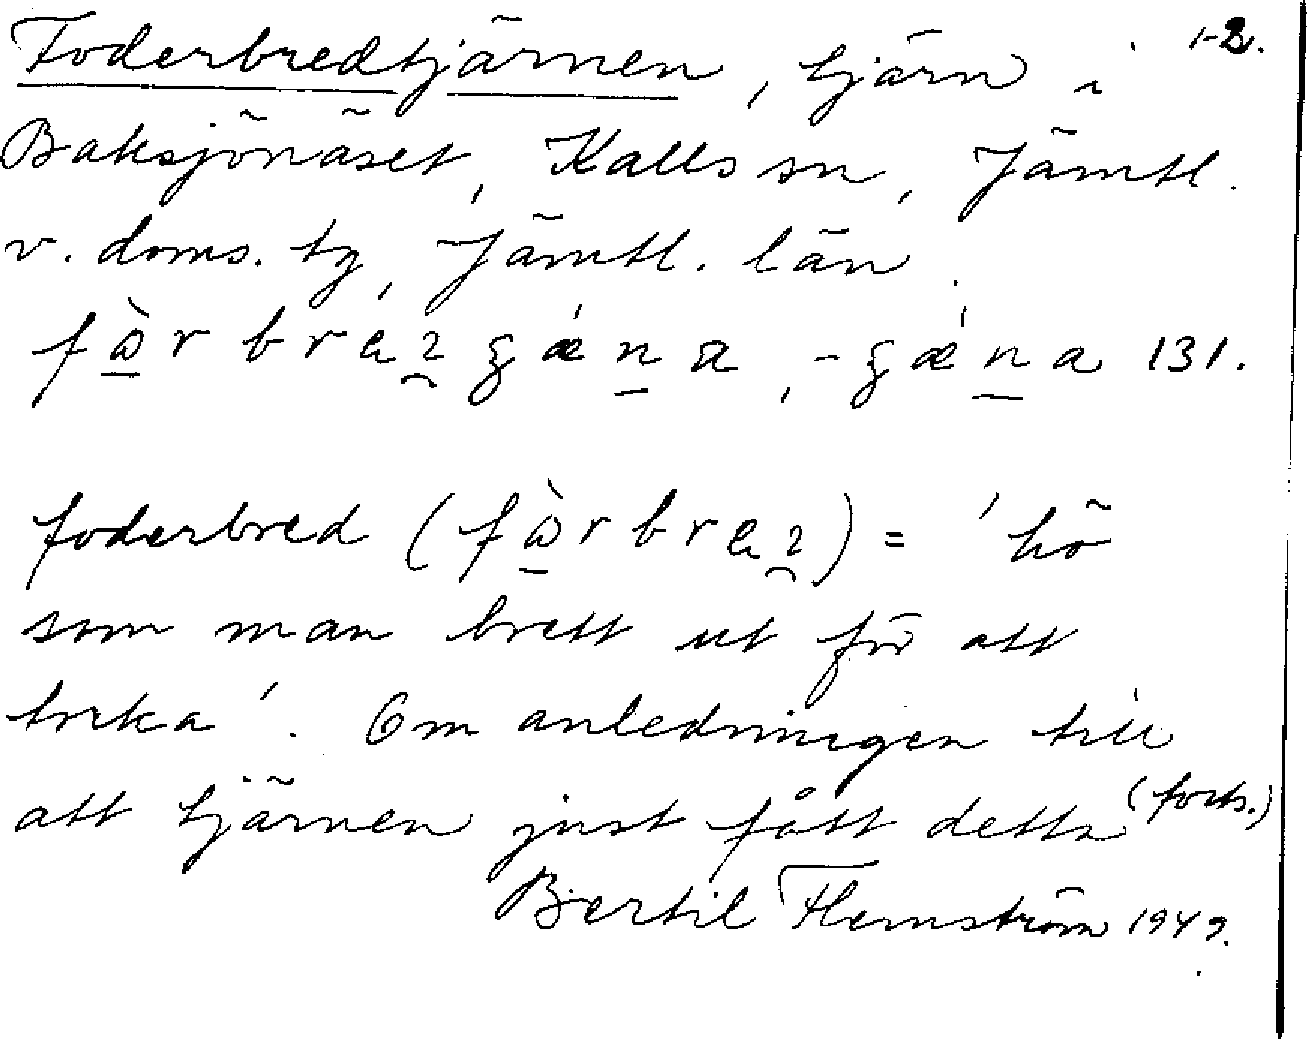 1-2.
Foderbredtjärnen, tjärn i
Baksjönäset, Kalls sn, Jämtl.
v. doms. tg, Jämtl. län.
131.
foderbred = 'hö
som man brett ut för att
torka'. Om anledningen till
att tjärnen just fått detta (forts.)
Bertil Flemström 1949.